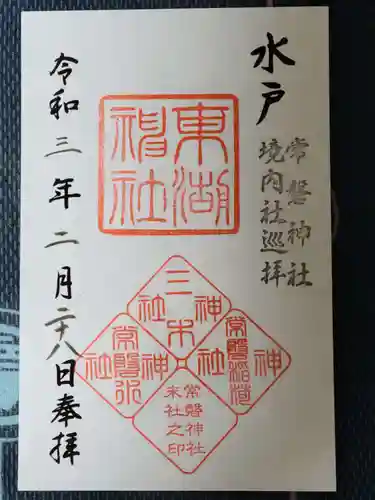 水戸
常磐神社
境内社巡拝
東湖
神社
三木
神社
常磐稲荷
神社
常磐水
神社
常磐神社
末社之印
令和三年二月二十八日奉拝